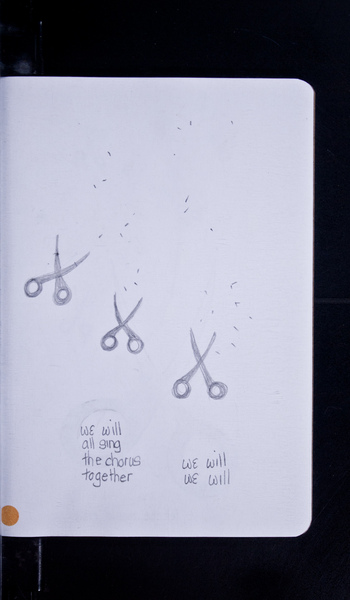 we will
all sing
the chorus
together
we will
we will